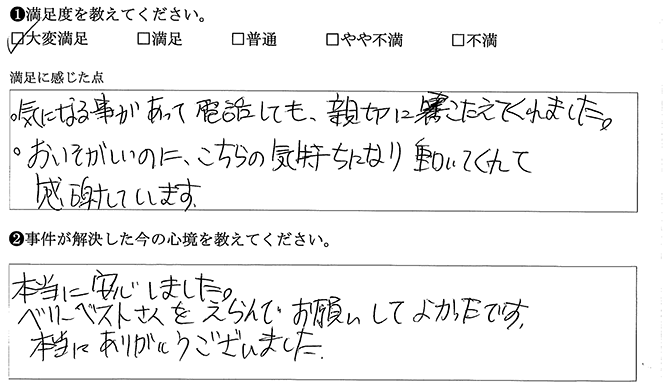 ❶満足度を教えてください。
☑大変満足 □満足 □普通 □やや不満 □不満
満足に感じた点
。気になる事があって電話しても、親切にこたえてくれました。
。おいそがしいのに、こちらの気持ちになり動いてくれて
感謝しています。
❷事件が解決した今の心境を教えてください。
本当に安心しました。
ベリーベストさんをえらんでお願いしてよかったです。
本当にありがとうございました。